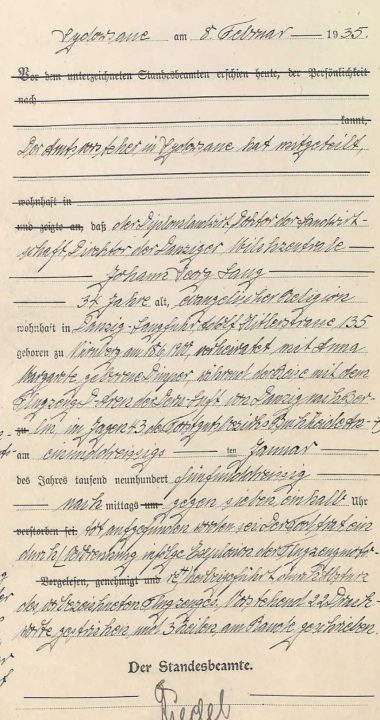 am 8. Februar 1935.
Vor dem unterzeichneten Standesbeamten erschien heute, der Persönlichkeit
nach
kannt,
Der Amtsvorsteher in hat mitgeteilt,
wohnhaft in
und zeigte an, daß der Diplomlandwirt, Doktor der Landwirt-
schaft, Direktor der Danziger Milchzentrale
Johann Georg Lang
34 Jahre alt, evangelischer Religion
wohnhaft in Danzig-Langfuhr Adolf Hitlerstrasse 135
geboren zu Nürnberg am 1900, verheiratet mit Anna
geborene während der Reise mit dem
Flugzeug der von Danzig nach Ber-
lin, in Jagen 3 des
am einunddreissigs ten Januar
des Jahres tausend neunhundert fünfunddreissig
nach mittags um gegen sieben einhalb Uhr
verstorben sei. tot aufgefunden worden sei. Der Tod ist ein
durch Verbrennung infolge Explosion der Flugzeugmoto-
Vorgelesen, genehmigt und herbeigeführt durch
des vorbezeichneten Flugzeuges. Vorstehend 22 Druck-
worte gestrichen und 3 Zeilen am Rande geschrieben.
Der Standesbeamte.
Riedel